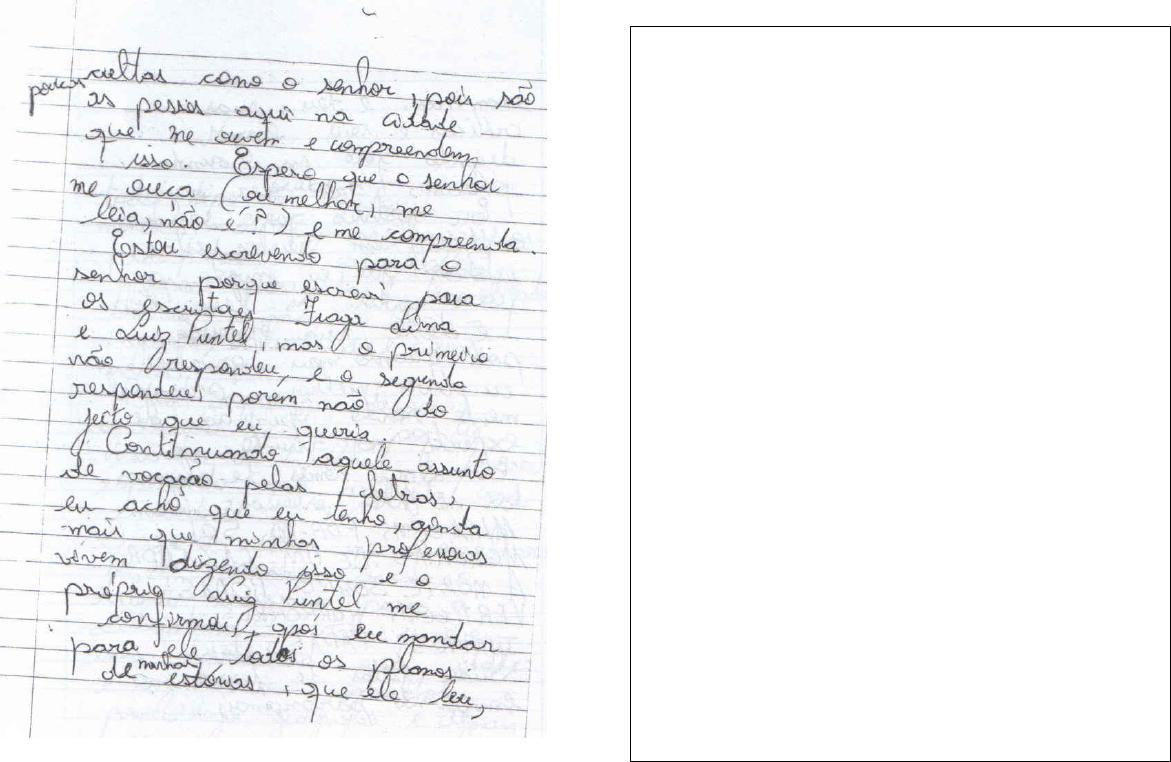 cultas como o senhor, pois são
poucas as pessoas aqui na cidade
que me ouvem e compreendem
isso. Espero que o senhor
me ouça (ou melhor, me
leia, não é?) e me compreenda.
Estou escrevendo para o
senhor porque escrevi para
os escritores Fraga Lima
e Luiz Puntel, mas o primeiro
não respondeu, e o segundo
respondeu, porém não do
jeito que eu queria.
Continuando aquele assunto
de vocação pelas letras,
eu acho que eu tenho, ainda
mais que minhas professoras
vivem dizendo isso e o
próprio Luiz Puntel me
confirmou, após eu mandar
para ele todos os planos
de minhas estórias, que ele leu,